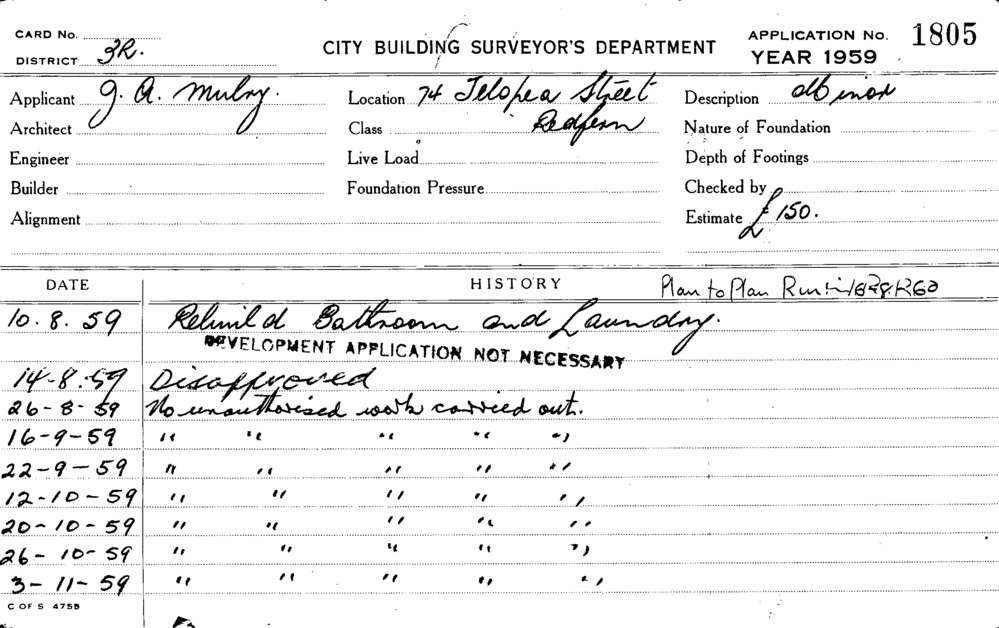 CARD No.
DISTRICT 3R.
CITY BUILDING SURVEYOR'S DEPARTMENT
APPLICATION No. 1805
YEAR 1959
Applicant J. A. Mulry. Location 74 Telopea Street Description Minor
Architect Class Redfern Nature of Foundation
Engineer Live Load Depth of Footings
Builder Foundation Pressure Checked by
Alignment Estimate £150.
DATE HISTORY Plan to Plan Room
10.8.59 Rebuild Bathroom and Laundry.
DEVELOPMENT APPLICATION NOT NECESSARY
14-8-59 Disapproved
26-8-59 No unauthorised work carried out.
16-9-59 " " " " "
22-9-59 " " " " "
12-10-59 " " " " "
20-10-59 " " " " "
26-10-59 " " " " "
3-11-59 " " " " "
C OF S 4755